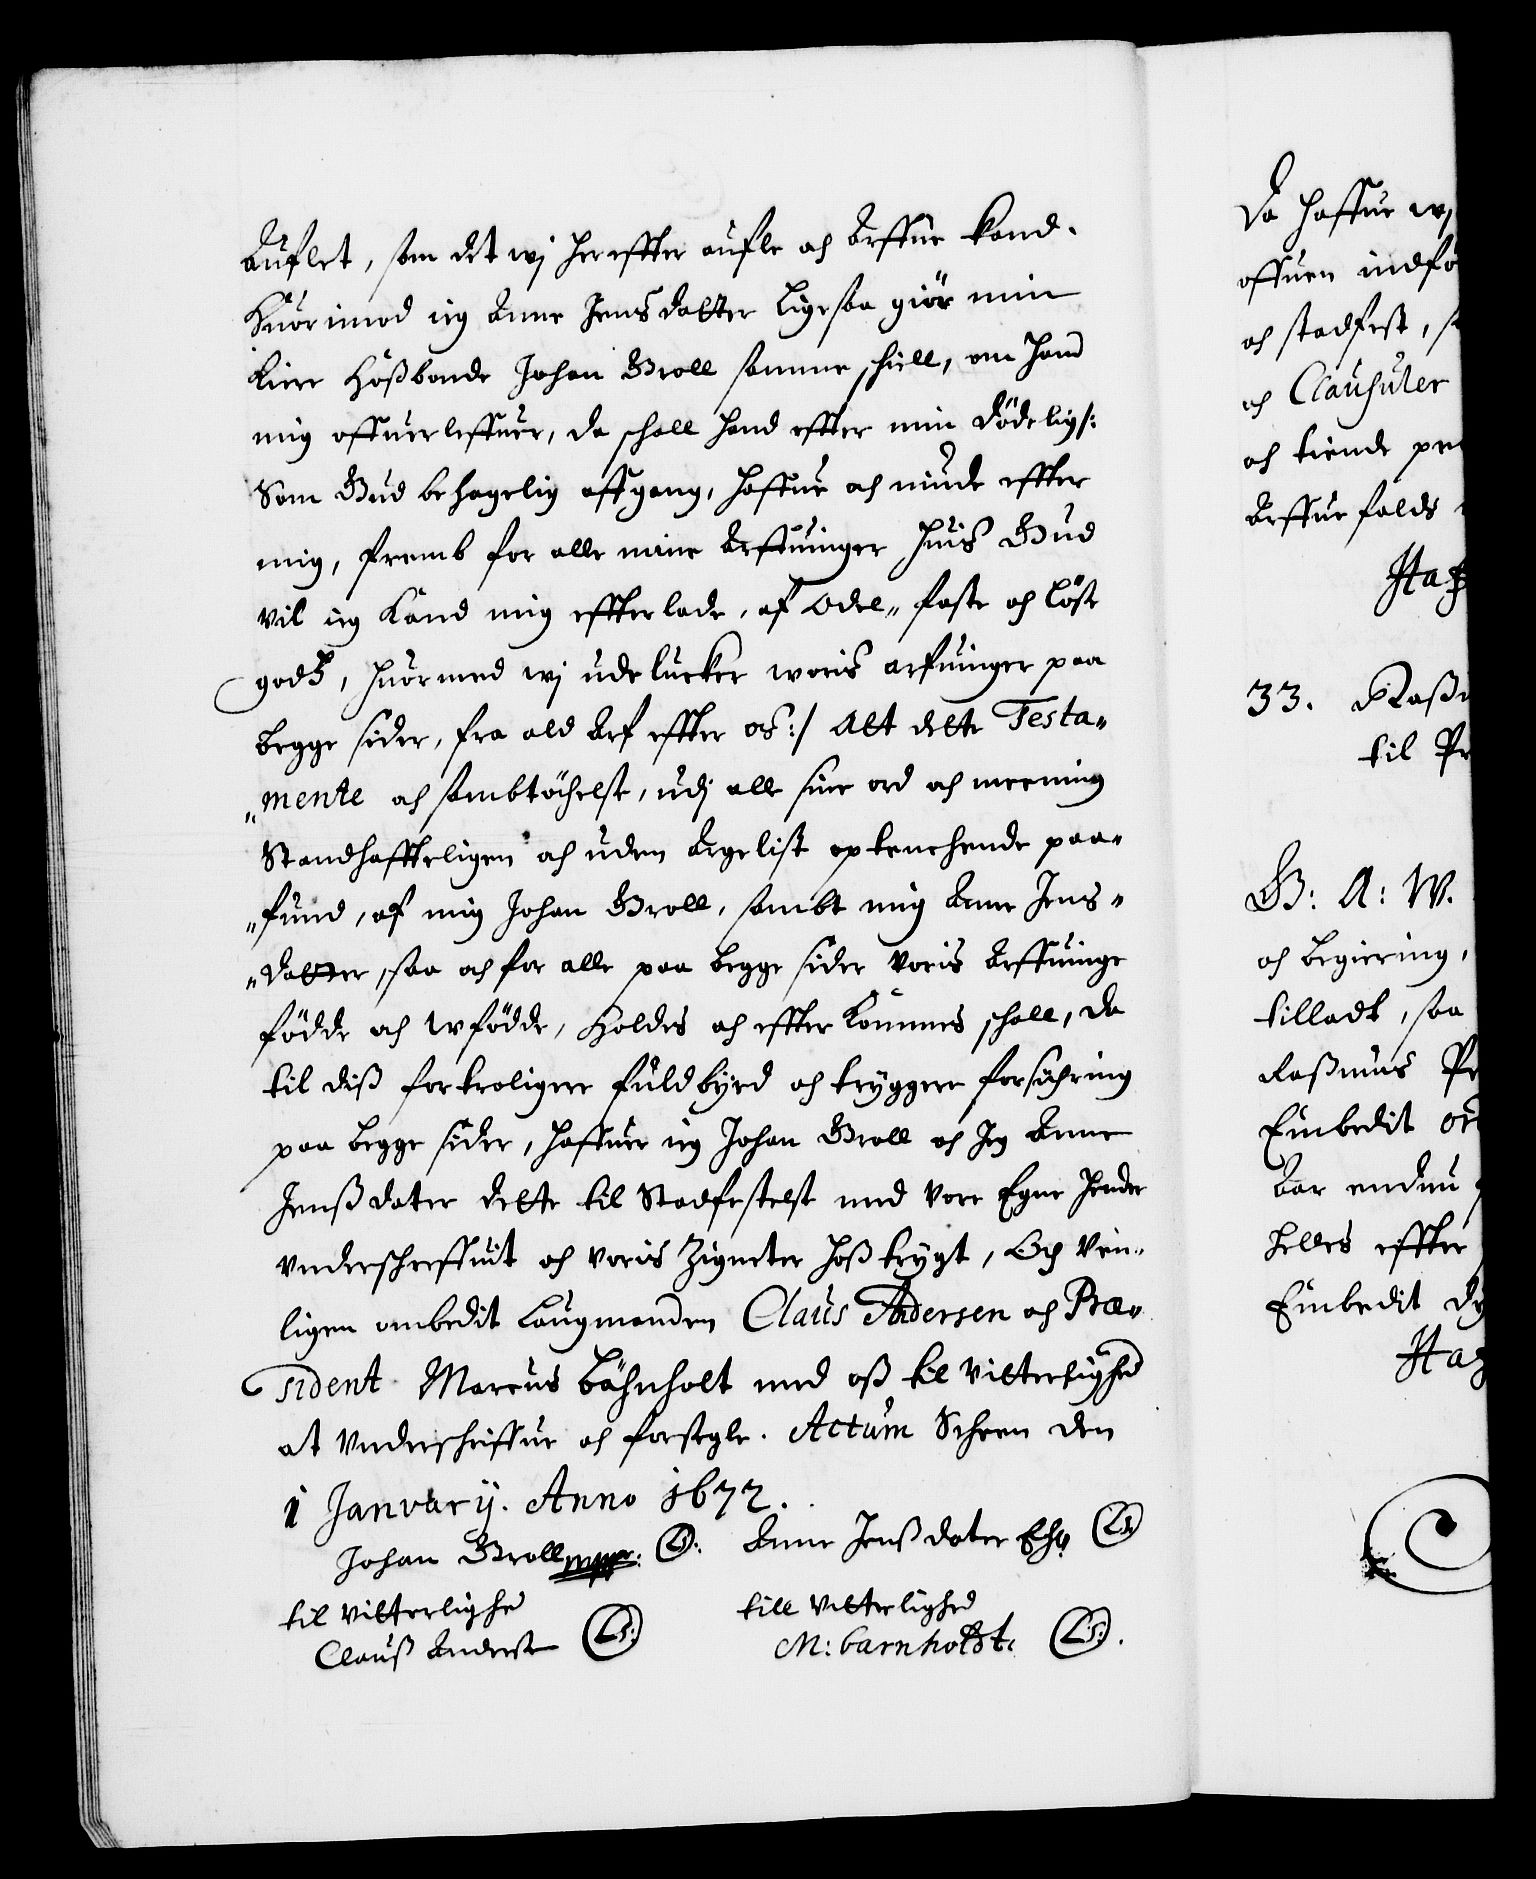 Auflet, som det wj herefter aufle och Arffue kand.
Huorimod ieg Anne Jensdatter ligesaa giör min
kiere Hoßbonde Johan Broll samme schiell, om hand
mig offuerleffuer, da schall hand effter min dödelig /:
Som Gud behagelig affgang, haffue och niude effter
mig, fremb for alle mine Arffuinger huis Gud
vil ieg kand mig effterlade, af Odel„ faste och löse
godß, huormed wj udelucker woris arfuinger paa
begge sider, fra ald Arf effter os :/ Alt dette Testa„
„mente och sambtöchelse, udj alle sine ord och meening
Standhaffteligen och uden Argelist optenchende paa„
„fund, af mig Johan Broll, sambt mig Anne Jens„
„datter, saa och for alle paa begge sider voris Arffuinge
födde och wfödde, Holdes och effterkommes schall, Da
til diß fortroligere fuldbyrd och tryggere forsichring
paa begge sider, haffuer ieg Johan Broll och Jeg Anne
Jenßdater dette til Stadfestelse med vore Egne hender
vnderschreffuit och voris Zigneter hoß trygt, Och ven„
ligen ombedit Laugmanden Claus Andersen och Præ„
sident Marcus Bähnholt med oß til vitterlighed
at vnderschriffue och forsegle. Actum Scheen den
1 Januarij. Anno 1672.
Johan Broll mppr: LS. Anne Jenßdater Eh LS
til vitterlighed till vitterlighed
Clauß Andersen LS: M: barnholdt. LS:.
Da haffue wj
offuen indfö
och stadfest, s
och Clausuler
och tiende pe
Arffuefalds
Haf
33. Raßm
til Pr
G: A: W.
och begiering,
tilladt, saa
Raßmus Pe
Embedit
bar endnu
helles effter
Embedit
Haf